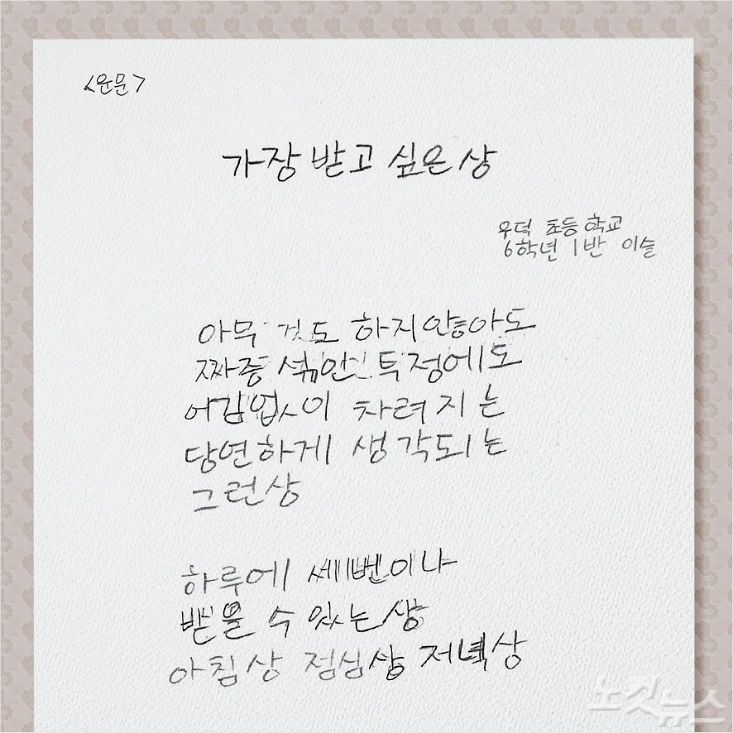 <운문>
가장 받고 싶은 상
우덕 초등학교
6학년 1반 이슬
아무 것도 하지않아도
짜증 섞인 투정에도
어김없이 차려지는
당연하게 생각되는
그런상
하루에 세번이나
받을 수 있는상
아침상 점심상 저녁상
노컷뉴스